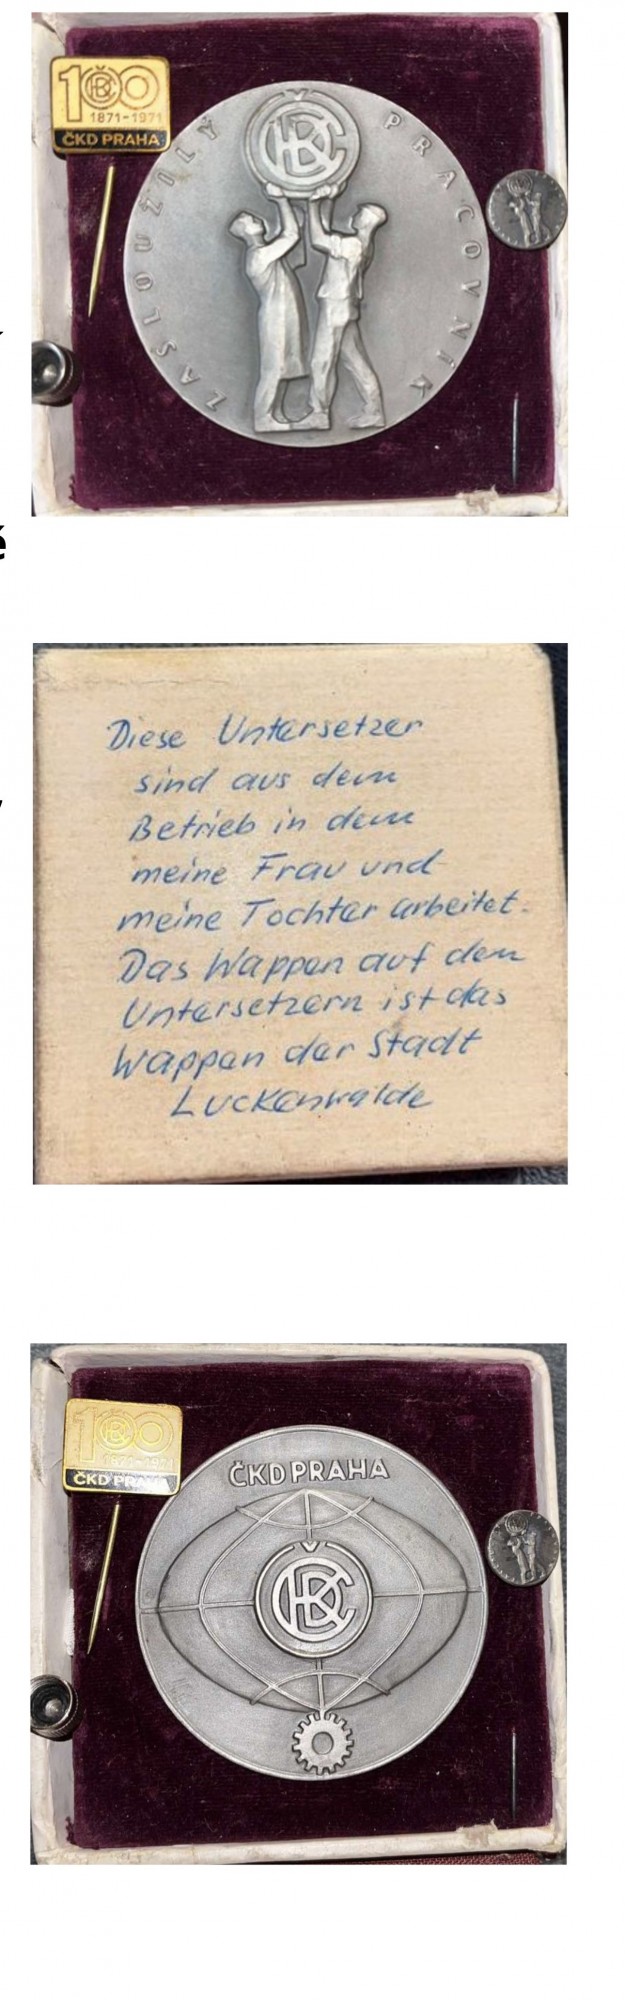 100
1871-1971
ČKD PRAHA
ZASLOUŽILÝ PRACOVNÍK
ČKD
é
Diese Untersetzer
sind aus dem
Betrieb in dem
meine Frau und
meine Tochter arbeitet.
Das Wappen auf den
Untersetzern ist das
Wappen der Stadt
Luckenwalde
100
1871-1971
ČKD PRAHA
ČKD PRAHA
ČKD